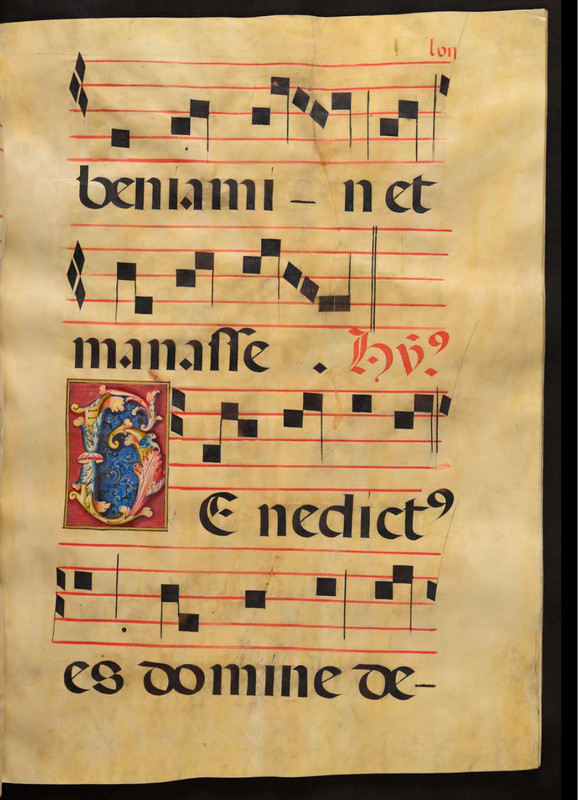 lon
beniami – n et
manasse . Hỹ9
BE nedictꝰ
es domine de–